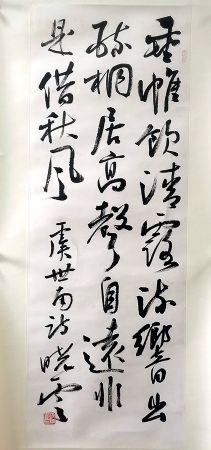 垂帷饮清露流響出
疏桐居高聲自遠非
是借秋风
虞世南诗晓云